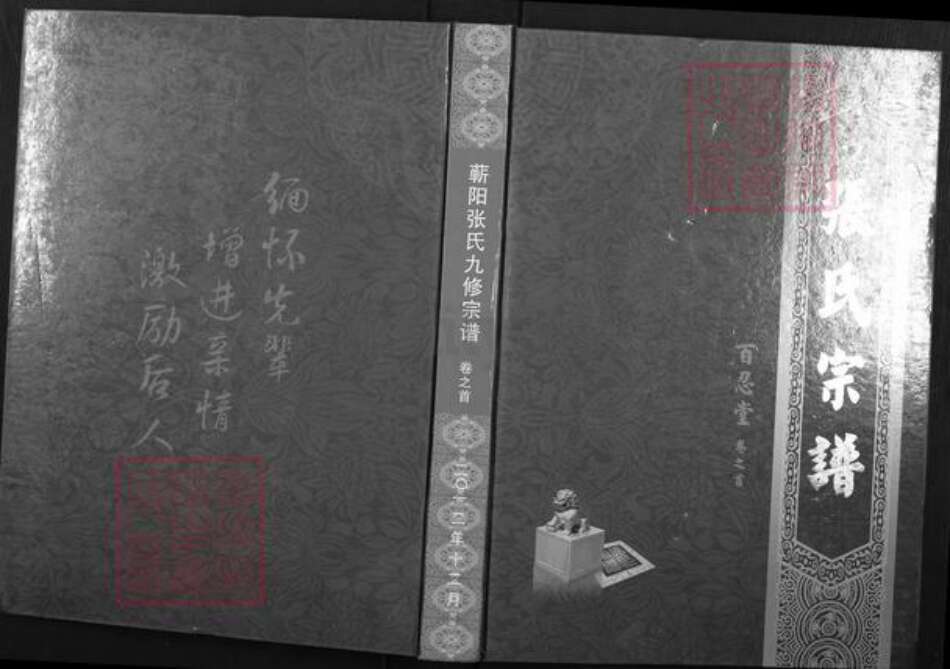 張氏宗譜
百忍堂 卷之首
蕲阳张氏九修宗谱
卷之首
二〇一二年十二月
缅怀先辈
增进亲情
激励后人